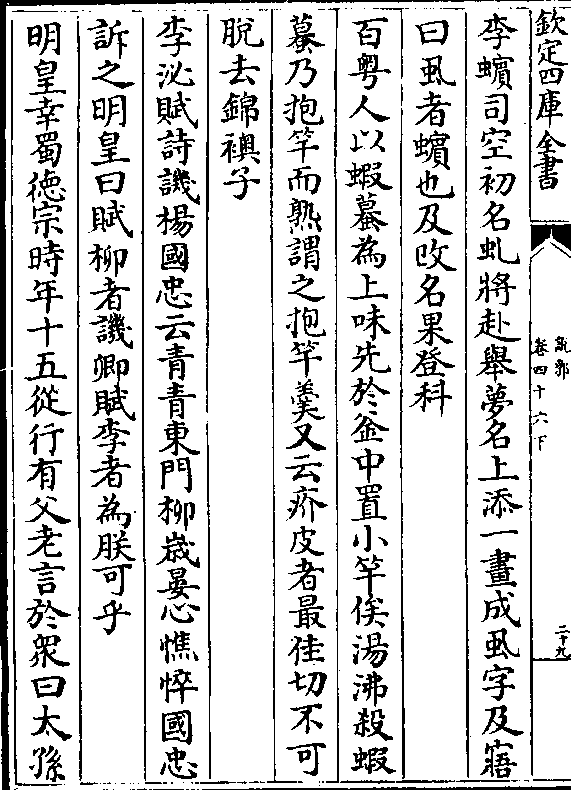 欽定四庫全書
說郛
卷四十六下
二十九
李蠙司空初名虬將赴舉夢名上添一畫成虱字及寤
曰虱者蠙也及改名果登科
百粤人以蝦蟇為上味先於釜中置小竿俟湯沸殺蝦
蟇乃抱竿而熟謂之抱竿羹又云疥皮者最佳切不可
脱去錦襖子
李泌賦詩譏楊國忠云青青東門柳嵗晏心憔悴國忠
訴之明皇曰賦柳者譏卿賦李者為朕可乎
明皇幸蜀徳宗時年十五從行有父老言於衆曰太孫